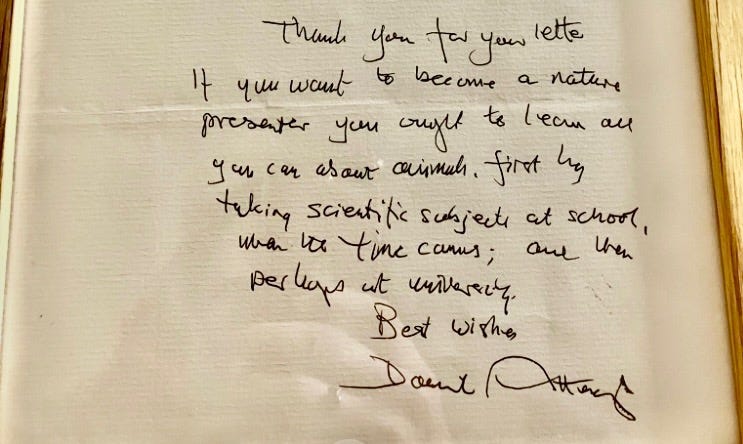 Thank you for your letter
If you want to become a nature
presenter you ought to learn all
you can about animals. first by
taking scientific subjects at school,
when the time comes; and then
perhaps at university.
Best wishes
David Attenborough